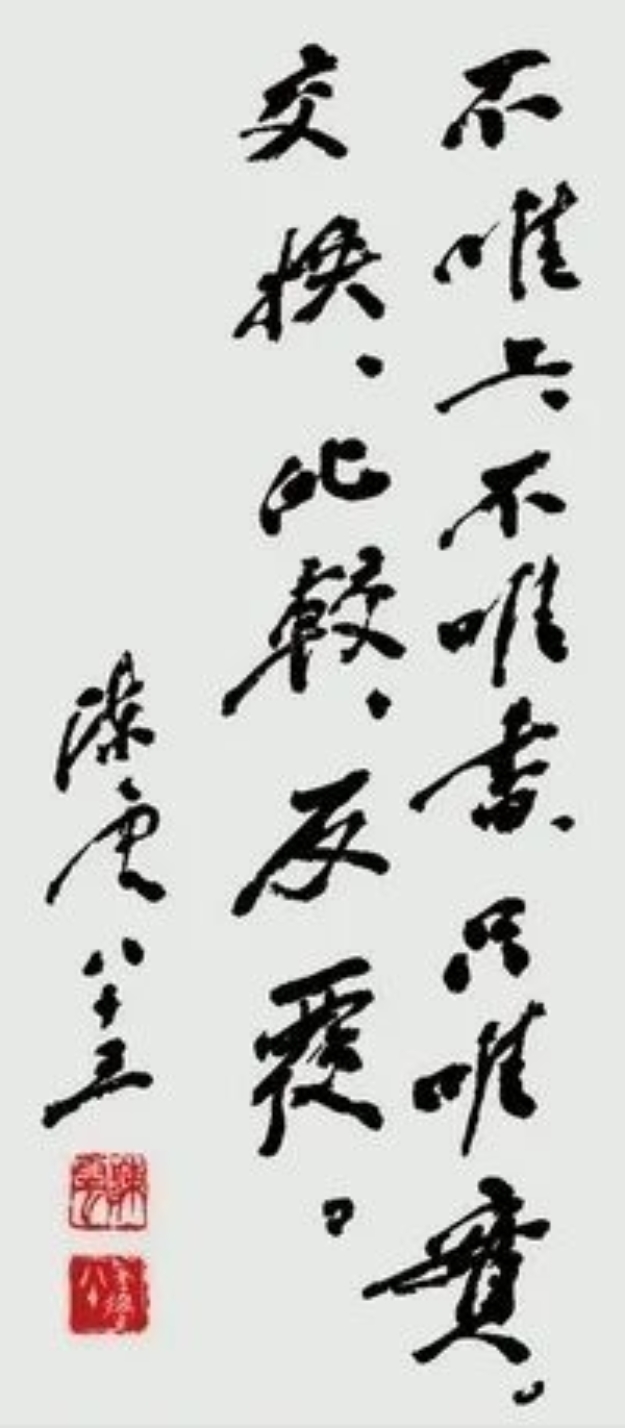 不唯上、不唯書、只唯實。
交換、比較、反覆。
陳雲八十三
陳雲